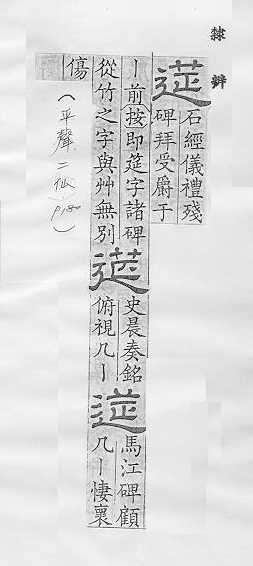 隸辨
莚
石經儀禮殘
碑拜受爵于
丨前按即筵字諸碑
從竹之字與艸無別
莚
史晨奏銘
俯視几丨
莚
馬江碑顧
几丨悽裏
傷
(平聲二仙 p.180)